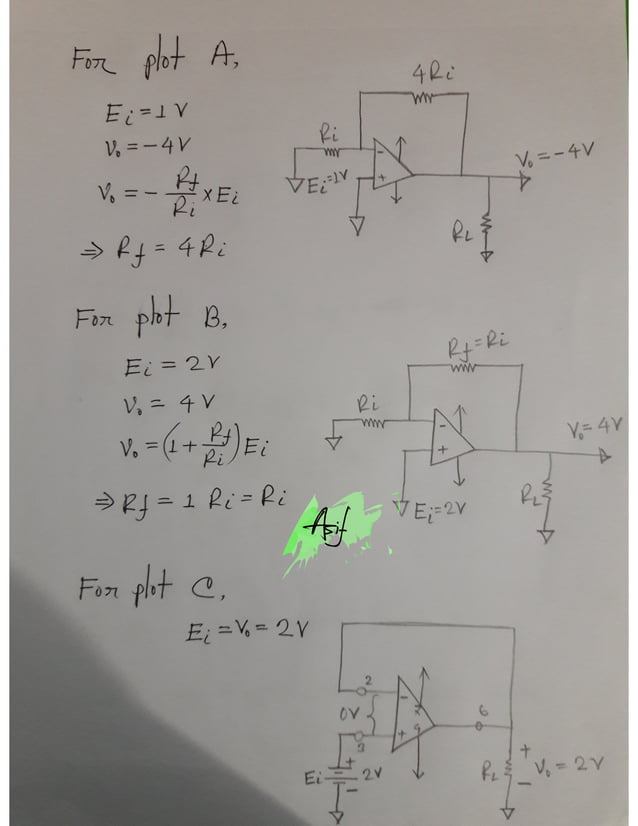 For plot A,
Ei = 1V
V₀ = -4V
V₀ = - Rf/Ri × Ei
⇒ Rf = 4Ri
4Ri
Ri
-
+
Ei=1V
V₀ = -4V
RL
For plot B,
Ei = 2V
V₀ = 4V
V₀ = (1 + Rf/Ri) Ei
⇒ Rf = 1 Ri = Ri
Rf = Ri
Ri
-
+
Ei=2V
V₀ = 4V
RL
Asif
For plot C,
Ei = V₀ = 2V
2
-
7
0V
6
4
+
3
Ei
+
-
2V
RL
+
-
V₀ = 2V